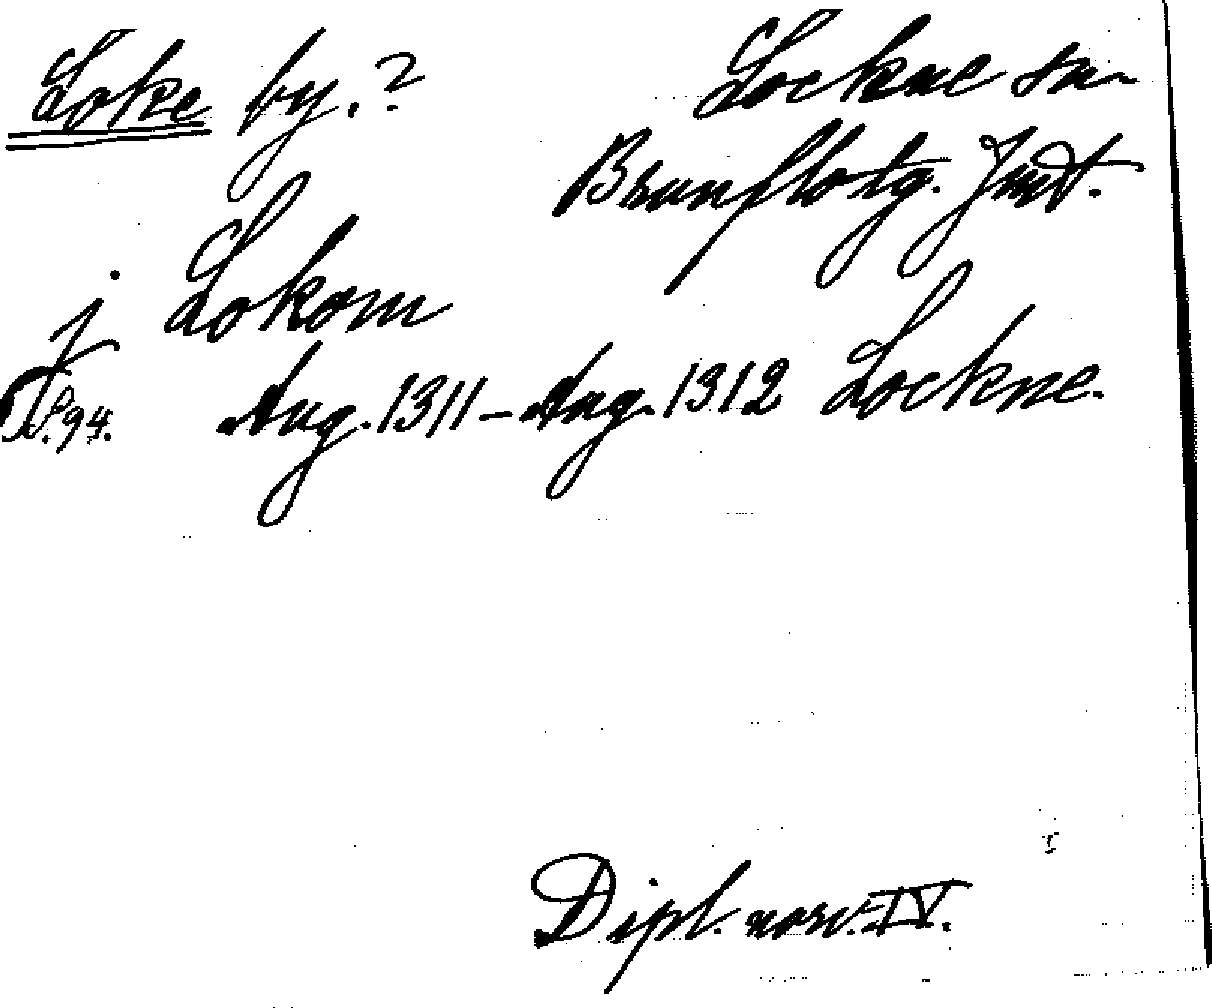 Loke by.? Lockne sn
Brunflo tg. Jmt.
j Lokom
N:o 94. Aug. 1311 – Aug. 1312 Lockne.
Dipl. norv. IV.